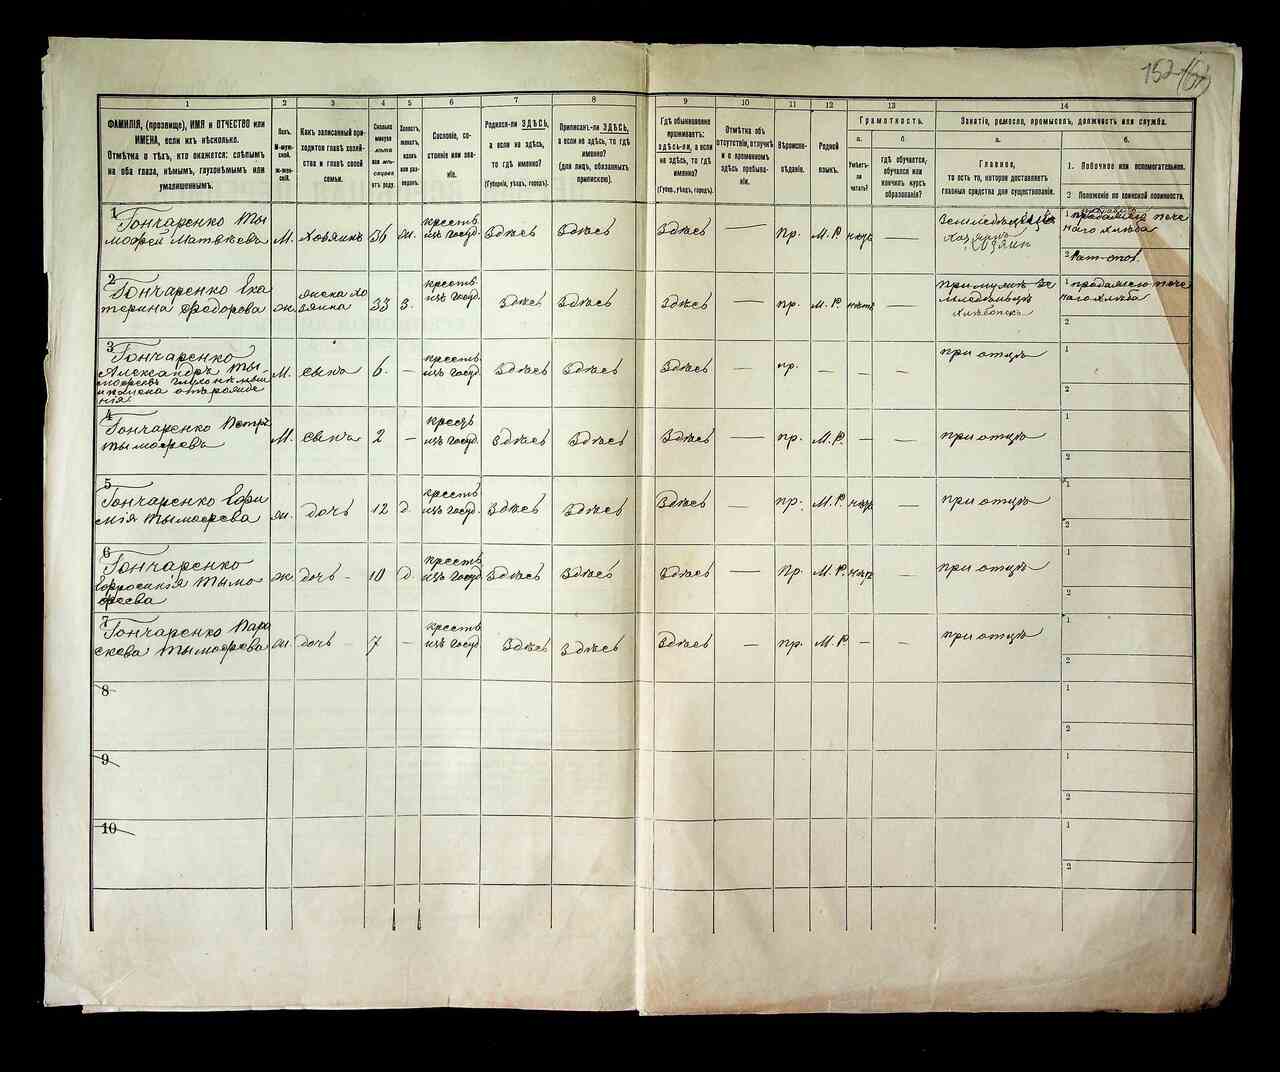 152
1 2 3 4 5 6 7 8 9 10 11 12 13 14
ФАМИЛІЯ, (прозвище), ИМЯ и ОТЧЕСТВО или
ИМЕНА, если ихъ нѣсколько.
Отмѣтка о тѣхъ, кто окажется: слѣпымъ
на оба глаза, нѣмымъ, глухонѣмымъ или
умалишеннымъ.
Полъ.
М-мужской.
Ж-женскій.
Какъ записанный при-
ходится главѣ хозяй-
ства и главѣ своей
семьи.
Сколько
минуло
лѣтъ
или мѣ-
сяцевъ
отъ роду.
Холостъ,
женатъ,
вдовъ
или раз-
веденъ.
Сословіе, со-
стояніе или зва-
ніе.
Родился-ли ЗДѢСЬ,
а если не здѣсь,
то гдѣ именно?
(Губернія, уѣздъ, городъ).
Приписанъ-ли ЗДѢСЬ,
а если не здѣсь, то гдѣ
именно?
(для лицъ, обязанныхъ
припискою).
Гдѣ обыкновенно
проживаетъ:
здѣсь-ли, а если
не здѣсь, то гдѣ
именно?
(Губерн., уѣздъ, городъ).
Отмѣтка объ
отсутствіи, отлучкѣ
и о временномъ
здѣсь пребыва-
ніи.
Вѣроиспо-
вѣданіе.
Родной
языкъ.
Грамотность.
а.
Умѣетъ-
ли
читать?
б.
гдѣ обучается,
обучался или
кончилъ курсъ
образованія?
Занятіе, ремесло, промыселъ, должность или служба.
а.
Главное,
то есть то, которое доставляетъ
главныя средства для существованія.
б.
1. Побочное или вспомогательное.
2 Положеніе по воинской повинности.
1 Гончаренко Ты
мофей Матвѣевъ М. хозяинъ 36 ж. крестъ. изъ госуд. Здѣсь Здѣсь Здѣсь — пр. М.Р. нѣтъ — хозяинъ 1 продажею пече
наго хлѣба
2 Рат-опол.
2 Гончаренко Ека
терина Федорова ж. жена хо
зяина 33 з. крестъ. изъ госуд. Здѣсь Здѣсь Здѣсь — пр. М.Р. нѣтъ — при мужѣ зе
мледѣлецъ
1 продажею пече
наго хлѣба
2
3 Гончаренко
Александръ Ты
мофеевъ глухонѣмый
отърожде
нія М. сынъ 6. — крестъ. изъ госуд. Здѣсь Здѣсь Здѣсь — пр. — — — при отцѣ 1
2
4 Гончаренко Петръ
Тымофеевъ М. сынъ 2 — крест. изъ госуд. Здѣсь Здѣсь Здѣсь — пр. М.Р. — — при отцѣ 1
2
5 Гончаренко Ефи
мія Тымофеева ж. дочь 12 д. крестъ изъ госуд. Здѣсь Здѣсь Здѣсь — пр. М.Р. нѣтъ — при отцѣ 1
2
6 Гончаренко
Ефросинія Тымо
феева ж. дочь - 10 д. крестъ изъ госуд. Здѣсь Здѣсь Здѣсь — пр. М.Р. нѣтъ — при отцѣ 1
2
7 Гончаренко Пара
скева Тымофеева ж. дочь - 7 — крестъ изъ госуд Здѣсь Здѣсь Здѣсь — пр. М.Р. — — при отцѣ 1
2
8 1
2
9 1
2
10 1
2